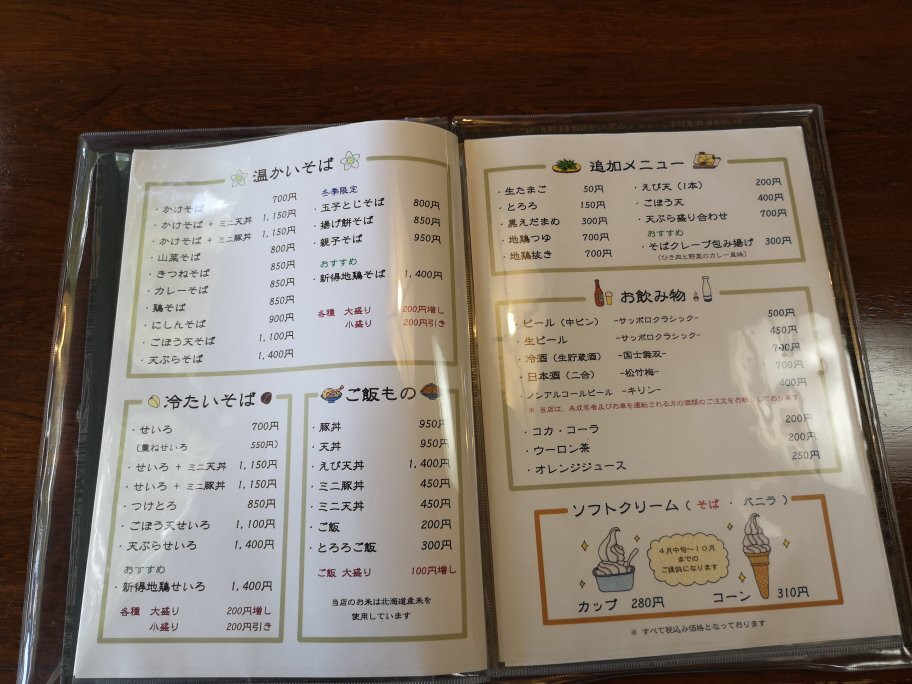 温かいそば
・かけそば 700円
・かけそば + ミニ天丼 1,150円
・かけそば + ミニ豚丼 1,150円
・山菜そば 800円
・きつねそば 850円
・カレーそば 850円
・鶏そば 850円
・にしんそば 900円
・ごぼう天そば 1,100円
・天ぷらそば 1,400円
冬季限定
・玉子とじそば 800円
・揚げ餅そば 850円
・親子そば 950円
おすすめ
・新得地鶏そば 1,400円
各種 大盛り 200円増し
小盛り 200円引き
冷たいそば
・せいろ 700円
(重ねせいろ 550円)
・せいろ + ミニ天丼 1,150円
・せいろ + ミニ豚丼 1,150円
・つけとろ 850円
・ごぼう天せいろ 1,100円
・天ぷらせいろ 1,400円
おすすめ
・新得地鶏せいろ 1,400円
各種 大盛り 200円増し
小盛り 200円引き
ご飯もの
・豚丼 950円
・天丼 950円
・えび天丼 1,400円
・ミニ豚丼 450円
・ミニ天丼 450円
・ご飯 200円
・とろろご飯 300円
ご飯 大盛り 100円増し
当店のお米は北海道産米を
使用しています
追加メニュー
・生たまご 50円
・とろろ 150円
・黒えだまめ 300円
・地鶏つゆ 700円
・地鶏抜き 700円
・えび天 (1本) 200円
・ごぼう天 400円
・天ぷら盛り合わせ 700円
おすすめ
・そばクレープ包み揚げ 300円
(ひき肉と野菜のカレー風味)
お飲み物
・ビール (中ビン) -サッポロクラシック- 500円
・生ビール -サッポロクラシック- 450円
・冷酒 (生貯蔵酒) -国士無双- 700円
・日本酒 (二合) -松竹梅- 700円
・ノンアルコールビール -キリン- 400円
※ 当店は、未成年者及びお車を運転される方の酒類のご注文をお断りしております
・コカ・コーラ 200円
・ウーロン茶 200円
・オレンジジュース 250円
ソフトクリーム ( そば ・ バニラ )
4月中旬～10月
までの
ご提供になります
カップ 280円
コーン 310円
※ すべて税込み価格となっております